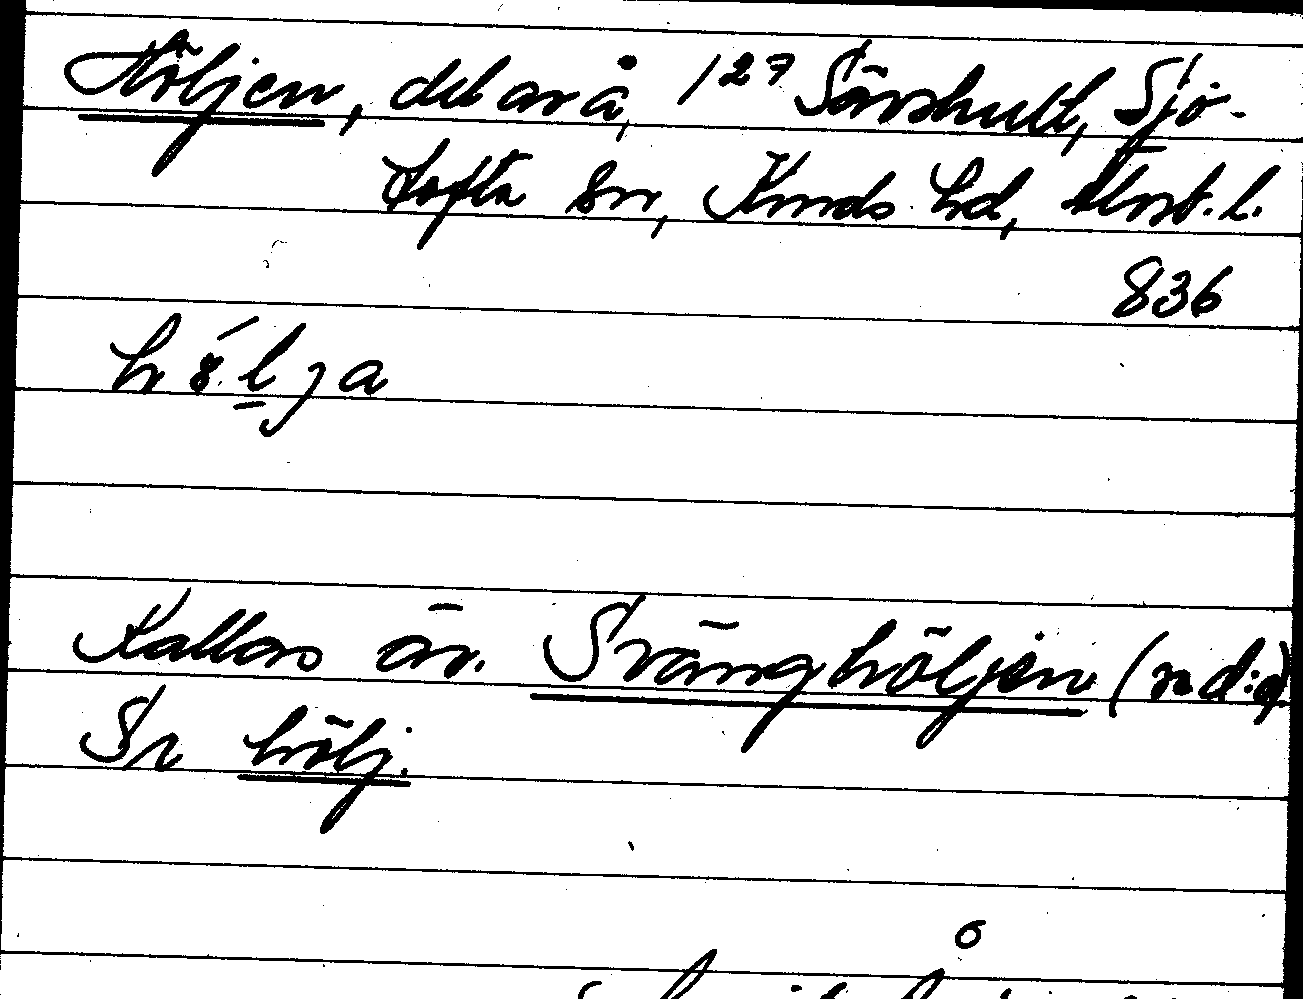 Höljen, del av å, 127 Särshult, Sjö-
tofta sn, Kinds hd, Älvsb. l.
836
hö́lja
Kallas äv. Svänghöljen (nd:o)
Se hölj.